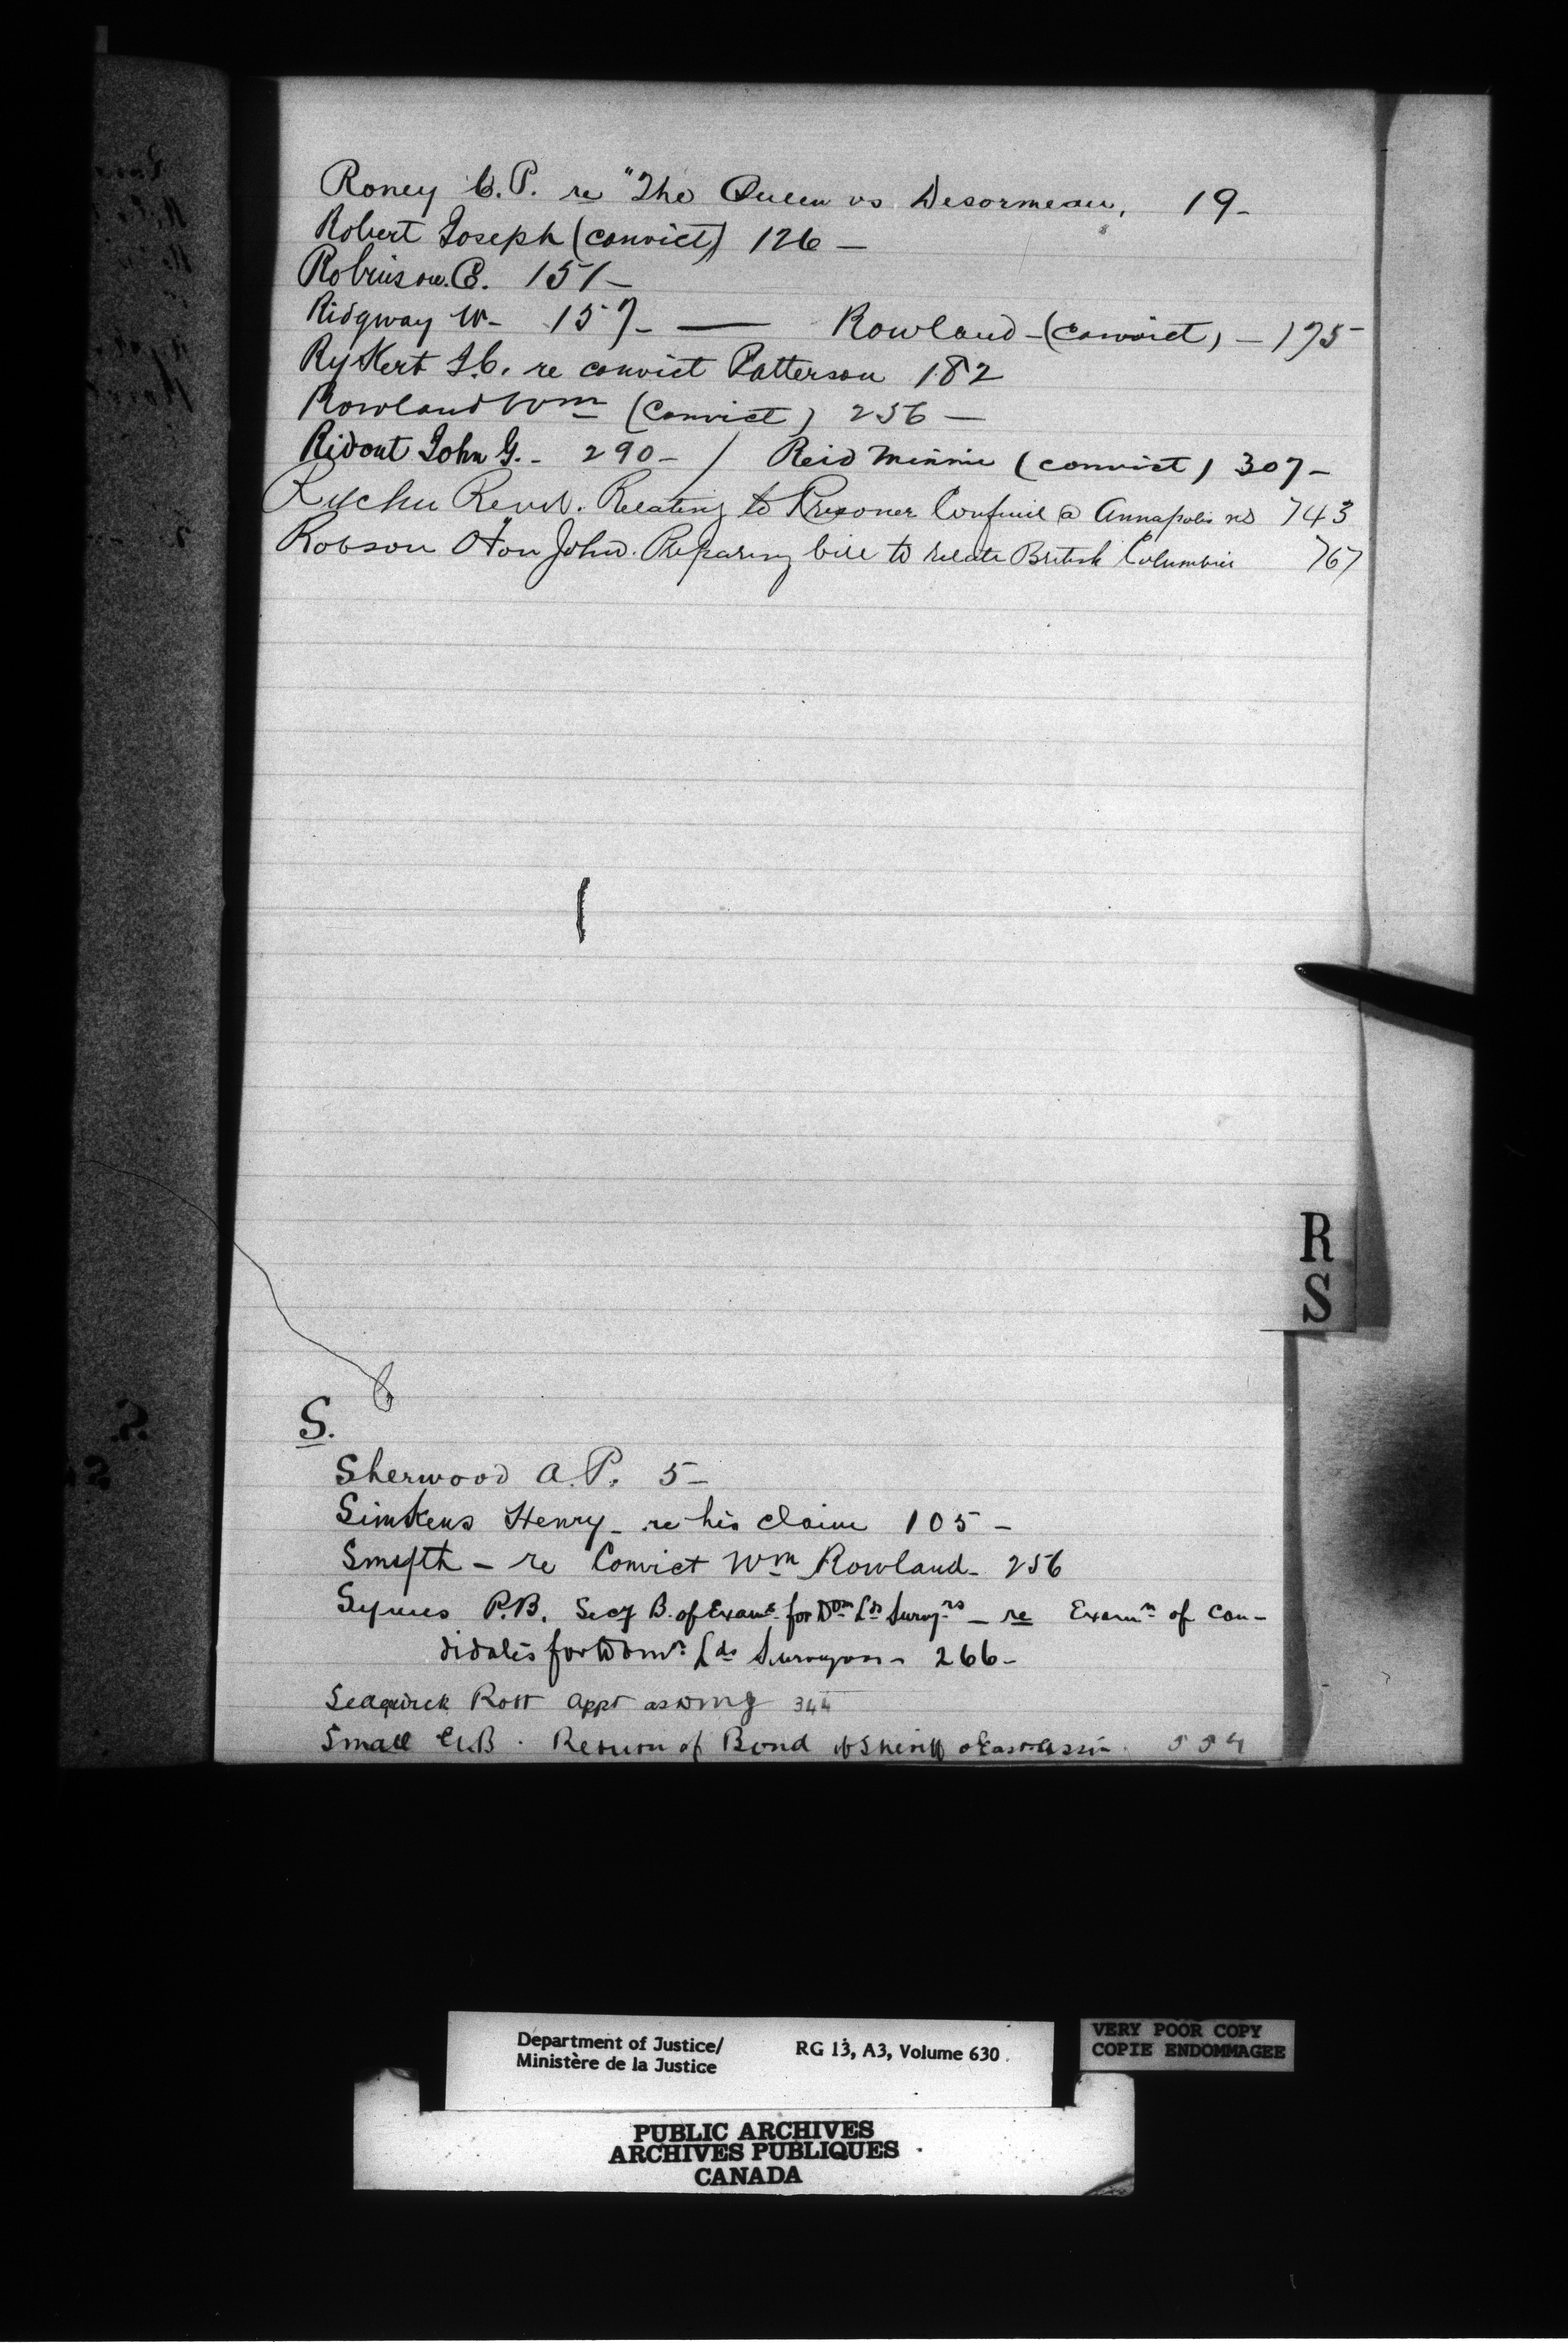 Roney C.P. re "The Queen vs Desormeau, 19-
Robert Joseph (convict) 126 —
Robinson. C. 151 —
Ridgway W- 157- — Rowland - (convict) - 175
Rykert J.C. re convict Patterson 182
Rowland Wm (Convict) 256 —
Ridout John G. - 290 - / Reid Minnie (convict) 307 -
Revd. Relating to Prisoner @ Annapolis NS 743
Robson Hon John. Preparing bill to relate British Columbia 767
R
S
S.
Sherwood A.P. 5 -
Simkens Henry - re his claim 105 -
Smyth - re Convict Wm Rowland - 256
Symes P.B. Secy B. of Exams. for Dom Lds Survyrs - re Examn of Can-
didates for Domn. Lds Surveyors - 266 -
Sedgwick Robt appt as DMJ 344
Small C.B. Return of Bond of Sheriff 554
Department of Justice/
Ministère de la Justice
RG 13, A3, Volume 630
VERY POOR COPY
COPIE ENDOMMAGEE
PUBLIC ARCHIVES
ARCHIVES PUBLIQUES
CANADA